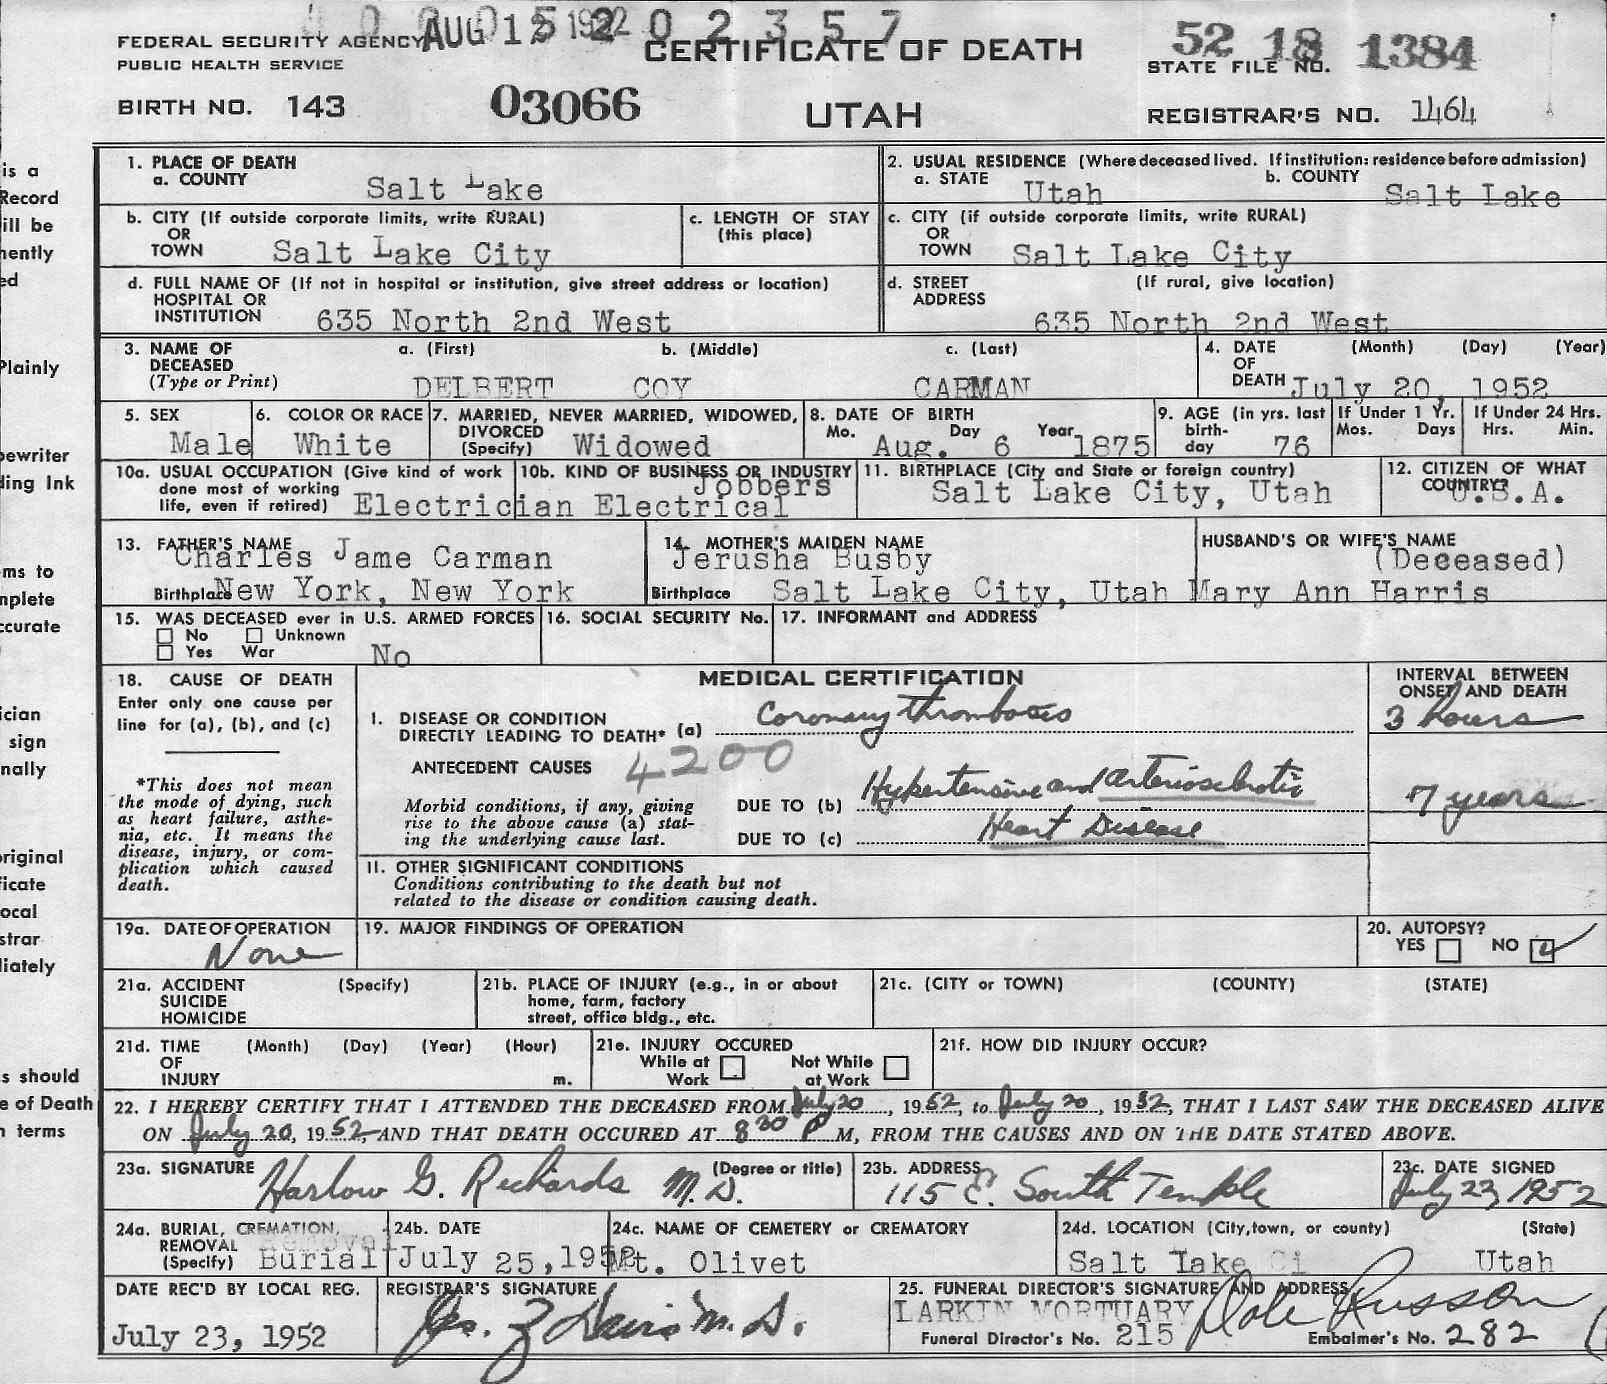 AUG 12 1952 202357
FEDERAL SECURITY AGENCY
PUBLIC HEALTH SERVICE
CERTIFICATE OF DEATH
52 18 1384
STATE FILE NO.
BIRTH NO. 143 03066 UTAH REGISTRAR'S NO. 1464
is a
Record
ill be
nently
ed
Plainly
pewriter
ling Ink
ms to
mplete
ccurate
ician
sign
nally
original
ficate
ocal
strar
liately
s should
e of Death
n terms
1. PLACE OF DEATH
a. COUNTY Salt Lake
2. USUAL RESIDENCE (Where deceased lived. If institution: residence before admission)
a. STATE Utah b. COUNTY Salt Lake
b. CITY (If outside corporate limits, write RURAL)
OR
TOWN Salt Lake City
c. LENGTH OF STAY
(this place)
c. CITY (if outside corporate limits, write RURAL)
OR
TOWN Salt Lake City
d. FULL NAME OF (If not in hospital or institution, give street address or location)
HOSPITAL OR
INSTITUTION 635 North 2nd West
d. STREET (If rural, give location)
ADDRESS
635 North 2nd West
3. NAME OF a. (First) b. (Middle) c. (Last)
DECEASED
(Type or Print) DELBERT COY CARMAN
4. DATE (Month) (Day) (Year)
OF
DEATH July 20, 1952
5. SEX
Male
6. COLOR OR RACE
White
7. MARRIED, NEVER MARRIED, WIDOWED,
DIVORCED
(Specify) Widowed
8. DATE OF BIRTH
Mo. Day Year
Aug. 6 1875
9. AGE (in yrs. last
birth-
day 76
If Under 1 Yr.
Mos. Days
If Under 24 Hrs.
Hrs. Min.
10a. USUAL OCCUPATION (Give kind of work
done most of working
life, even if retired) Electrician
10b. KIND OF BUSINESS OR INDUSTRY
Jobbers
Electrical
11. BIRTHPLACE (City and State or foreign country)
Salt Lake City, Utah
12. CITIZEN OF WHAT
COUNTRY?
U.S.A.
13. FATHER'S NAME
Charles Jame Carman
Birthplace New York, New York
14. MOTHER'S MAIDEN NAME
Jerusha Busby
Birthplace Salt Lake City, Utah
HUSBAND'S OR WIFE'S NAME
(Deceased)
Mary Ann Harris
15. WAS DECEASED ever in U.S. ARMED FORCES
No Unknown
Yes War No
16. SOCIAL SECURITY No.
17. INFORMANT and ADDRESS
18. CAUSE OF DEATH
Enter only one cause per
line for (a), (b), and (c)
*This does not mean
the mode of dying, such
as heart failure, asthe-
nia, etc. It means the
disease, injury, or com-
plication which caused
death.
MEDICAL CERTIFICATION
INTERVAL BETWEEN
ONSET AND DEATH
I. DISEASE OR CONDITION
DIRECTLY LEADING TO DEATH* (a) Coronary thrombosis 3 hours
ANTECEDENT CAUSES 4200
Morbid conditions, if any, giving
rise to the above cause (a) stat-
ing the underlying cause last.
DUE TO (b) Hypertensive and arteriosclerotic 7 years
DUE TO (c) Heart Disease
II. OTHER SIGNIFICANT CONDITIONS
Conditions contributing to the death but not
related to the disease or condition causing death.
19a. DATE OF OPERATION
None
19. MAJOR FINDINGS OF OPERATION
20. AUTOPSY?
YES NO
21a. ACCIDENT (Specify)
SUICIDE
HOMICIDE
21b. PLACE OF INJURY (e.g., in or about
home, farm, factory
street, office bldg., etc.
21c. (CITY or TOWN) (COUNTY) (STATE)
21d. TIME (Month) (Day) (Year) (Hour)
OF
INJURY m.
21e. INJURY OCCURED
While at Work
Not While at Work
21f. HOW DID INJURY OCCUR?
22. I HEREBY CERTIFY THAT I ATTENDED THE DECEASED FROM July 20, 1952, to July 20, 1952, THAT I LAST SAW THE DECEASED ALIVE
ON July 20, 1952, AND THAT DEATH OCCURED AT 8 30 P M, FROM THE CAUSES AND ON THE DATE STATED ABOVE.
23a. SIGNATURE (Degree or title)
Harlow G. Richards M.D.
23b. ADDRESS
115 E. South Temple
23c. DATE SIGNED
July 23, 1952
24a. BURIAL, CREMATION,
REMOVAL
(Specify) Burial
24b. DATE
July 25, 1952
24c. NAME OF CEMETERY or CREMATORY
Mt. Olivet
24d. LOCATION (City, town, or county) (State)
Salt Lake Ci Utah
DATE REC'D BY LOCAL REG.
July 23, 1952
REGISTRAR'S SIGNATURE
Jas. Z Davis M.D.
25. FUNERAL DIRECTOR'S SIGNATURE AND ADDRESS
LARKIN MORTUARY Dale Russon
Funeral Director's No. 215 Embalmer's No. 282